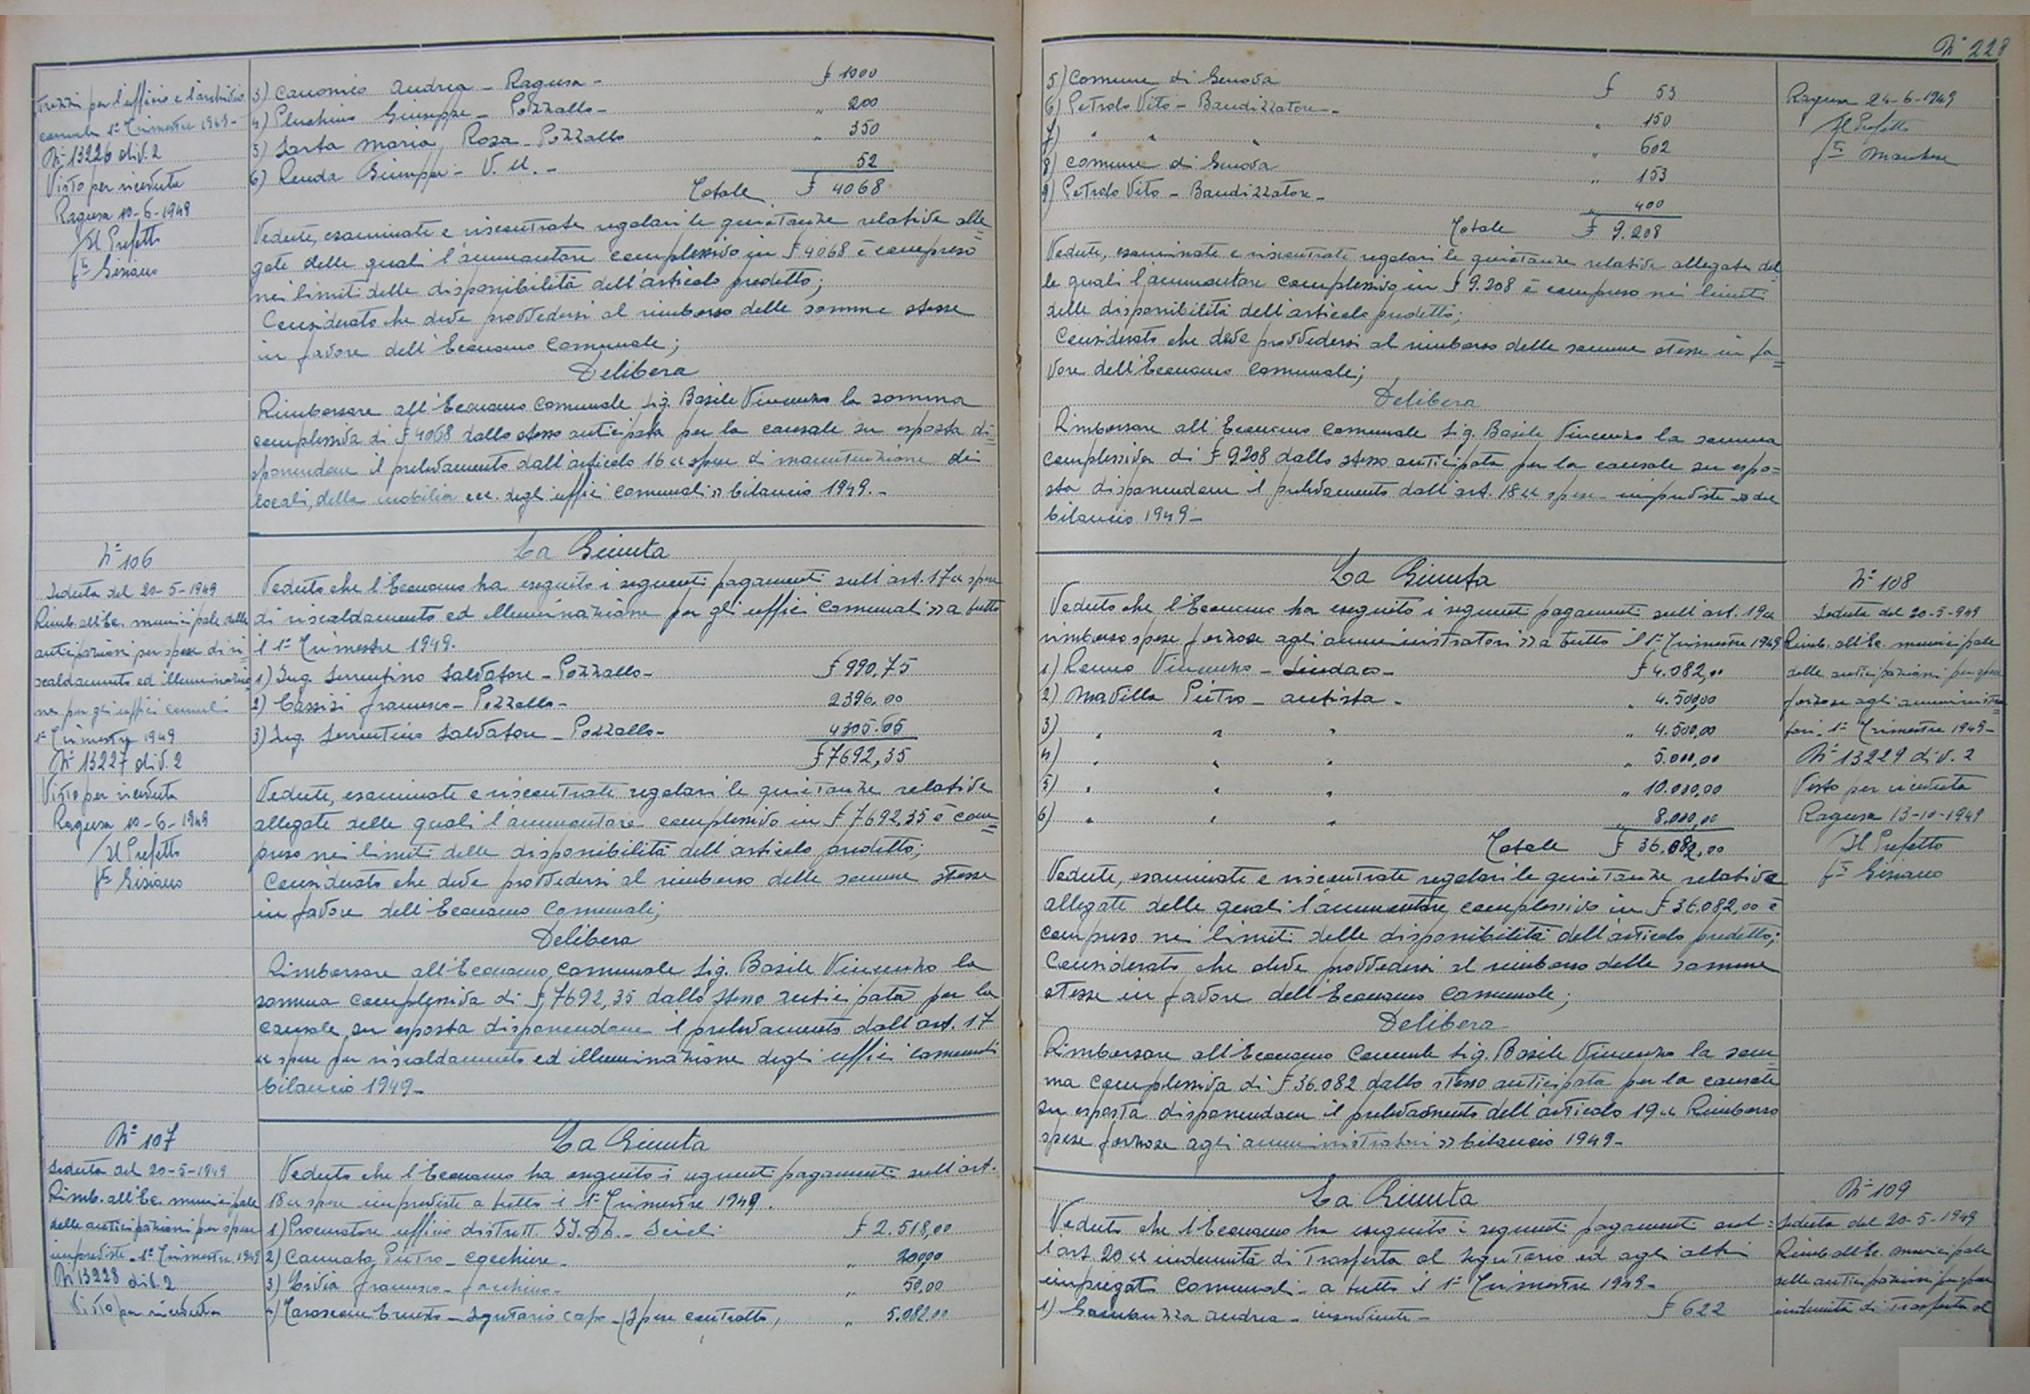 N° 228
Prezzi per l'ufficio e l'archivio
comunale 1° Trimestre 1949-
N° 13226 div. 2
Visto per ricevuta
Ragusa 10-6-1949
Il Prefetto
f.to Gisiano
3) Canonico Andrea - Ragusa - £ 1000
4) Pluchino Giuseppe - Pozzallo - " 200
5) Sarta Maria, Rosa Pozzallo " 350
6) Renda Giuseppe - V. U. - 52
Totale £ 4068
Vedute, esaminate e riscontrate regolari le quietanze relative alle=
gate delle quali l'ammontare complessivo in £ 4068 è compreso
nei limiti delle disponibilità dell'articolo predetto;
Considerato che deve provvedersi al rimborso delle somme stesse
in favore dell'Economo Comunale;
Delibera
Rimborsare all'Economo Comunale Sig. Basile Vincenzo la somma
complessiva di £ 4068 dallo stesso anticipata per la causale su esposta di=
sponendone il prelevamento dall'articolo 16 « spese di manutenzione dei
locali, della mobilia ecc. degli uffici comunali » bilancio 1949.-
N° 106
Seduta del 20-5-1949
Rimb. all'Ec. municipale delle
anticipazioni per spese di ri=
scaldamento ed illuminazio
ne per gli uffici comunali
1° Trimestre 1949
N° 13227 div. 2
Visto per ricevuta
Ragusa 10-6-1949
Il Prefetto
f.to Gisiano
La Giunta
Veduto che l'Economo ha eseguito i seguenti pagamenti sull'art. 17 « spese
di riscaldamento ed illuminazione per gli uffici comunali » a tutto
il 1° Trimestre 1949.
1) Ing. Sorrentino Salvatore - Pozzallo - £ 990,75
2) Cassisi Francesco - Pozzallo - 2396,00
3) Ing. Sorrentino Salvatore - Pozzallo - 4305.65
£ 7692,35
Vedute, esaminate e riscontrate regolari le quietanze relative
allegate delle quali l'ammontare complessivo in £ 7692,35 è com=
preso nei limiti delle disponibilità dell'articolo predetto;
Considerato che deve provvedersi al rimborso delle somme stesse
in favore dell'Economo Comunale;
Delibera
Rimborsare all'Economo Comunale Sig. Basile Vincenzo la
somma complessiva di £ 7692,35 dallo stesso anticipata per la
causale su esposta disponendone il prelevamento dall'art. 17
« spese per riscaldamento ed illuminazione degli uffici comunali
bilancio 1949-
N° 107
Seduta del 20-5-1949
Rimb. all'Ec. municipale
delle anticipazioni per spese
impreviste - 1° Trimestre 1949
N° 13228 div. 2
Visto per ricevuta
La Giunta
Veduto che l'Economo ha eseguito i seguenti pagamenti sull'art.
18 « spese impreviste a tutto i 1° Trimestre 1949.
1) Procuratore ufficio distrett. II.DD. - Scicli £ 2.518,00
2) Cannata Pietro - cocchiere - "
3) Francesco - facchino - " 50,00
4) - Segretario capo - (spese contratto, " 5.082.00
5) Comune di Genova £ 53
6) Petrolo Vito - Banditore - " 150
7) " " " 602
8) Comune di Genova " 153
9) Petrolo Vito - Banditore - " 400
Totale £ 9.208
Vedute, esaminate e riscontrate regolari le quietanze relative allegate del
le quali l'ammontare complessivo in £ 9.208 è compreso nei limiti
delle disponibilità dell'articolo predetto;
Considerato che deve provvedersi al rimborso delle somme stesse in fa=
vore dell'Economo Comunale;
Delibera
Rimborsare all'Economo Comunale Sig. Basile Vincenzo la somma
complessiva di £ 9208 dallo stesso anticipata per la causale su espo=
sta disponendone il prelevamento dall'art. 18 « spese - impreviste » del
bilancio 1949-
Ragusa 24-6-1949
Il Prefetto
f.to
La Giunta
Veduto che l'Economo ha eseguito i seguenti pagamenti sull'art. 19 «
rimborso spese forzose agli amministratori » a tutto il 1° Trimestre 1949
1) Renno Vincenzo - Sindaco - £ 4.082,00
2) Mavilla Pietro - autista - " 4.500,00
3) " " " " 4.500,00
4) " " " " 5.000,00
5) " " " " 10.000,00
6) " " " " 8.000,00
Totale £ 36.082,00
Vedute, esaminate e riscontrate regolari le quietanze relative
allegate delle quali l'ammontare complessivo in £ 36.082,00 è
compreso nei limiti delle disponibilità dell'articolo predetto;
Considerato che deve provvedersi al rimborso delle somme
stesse in favore dell'Economo Comunale;
Delibera
Rimborsare all'Economo Comunale Sig. Basile Vincenzo la som=
ma complessiva di £ 36.082 dallo stesso anticipata per la causale
su esposta disponendone il prelevamento dell'articolo 19 « Rimborso
spese forzose agli amministratori » bilancio 1949-
N° 108
Seduta del 20-5-949
Rimb. all'Ec. municipale
delle anticipazioni per spese
forzose agli amministra=
tori - 1° Trimestre 1949-
N° 13229 div. 2
Visto per ricevuta
Ragusa 13-10-1949
Il Prefetto
f.to Gisiano
La Giunta
Veduto che l'Economo ha eseguito i seguenti pagamenti sul=
l'art. 20 « indennità di Trasferta al Segretario ed agli altri
impiegati Comunali - a tutto il 1° Trimestre 1949-
1) Gambuzza Andrea - inserviente - £ 622
N° 109
Seduta del 20-5-1949
Rimb. all'Ec. municipale
delle anticipazioni per spese
indennità di Trasferta al